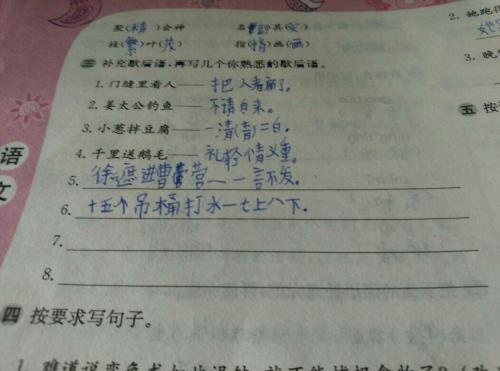 聚(精)会神
名(副)其(实)
枝(繁)叶(茂)
指(指)画(画)
三 补充歇后语，再写几个你熟悉的歇后语。
1. 门缝里看人——把人看扁了。
2. 姜太公钓鱼——不请自来。
3. 小葱拌豆腐——一清(青)二白。
4. 千里送鹅毛——礼轻情义重。
5. 徐庶进曹营——一言不发。
6. 十五个吊桶打水—七上八下.
7.
8.
四 按要求写句子。
语
文
2. 她跑得
她
3. 晚
五 按